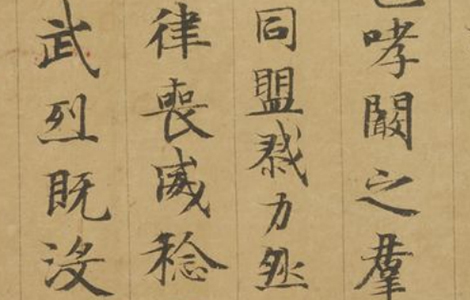 哮闞之羣
同盟戮力然
律喪威稔
武烈既沒